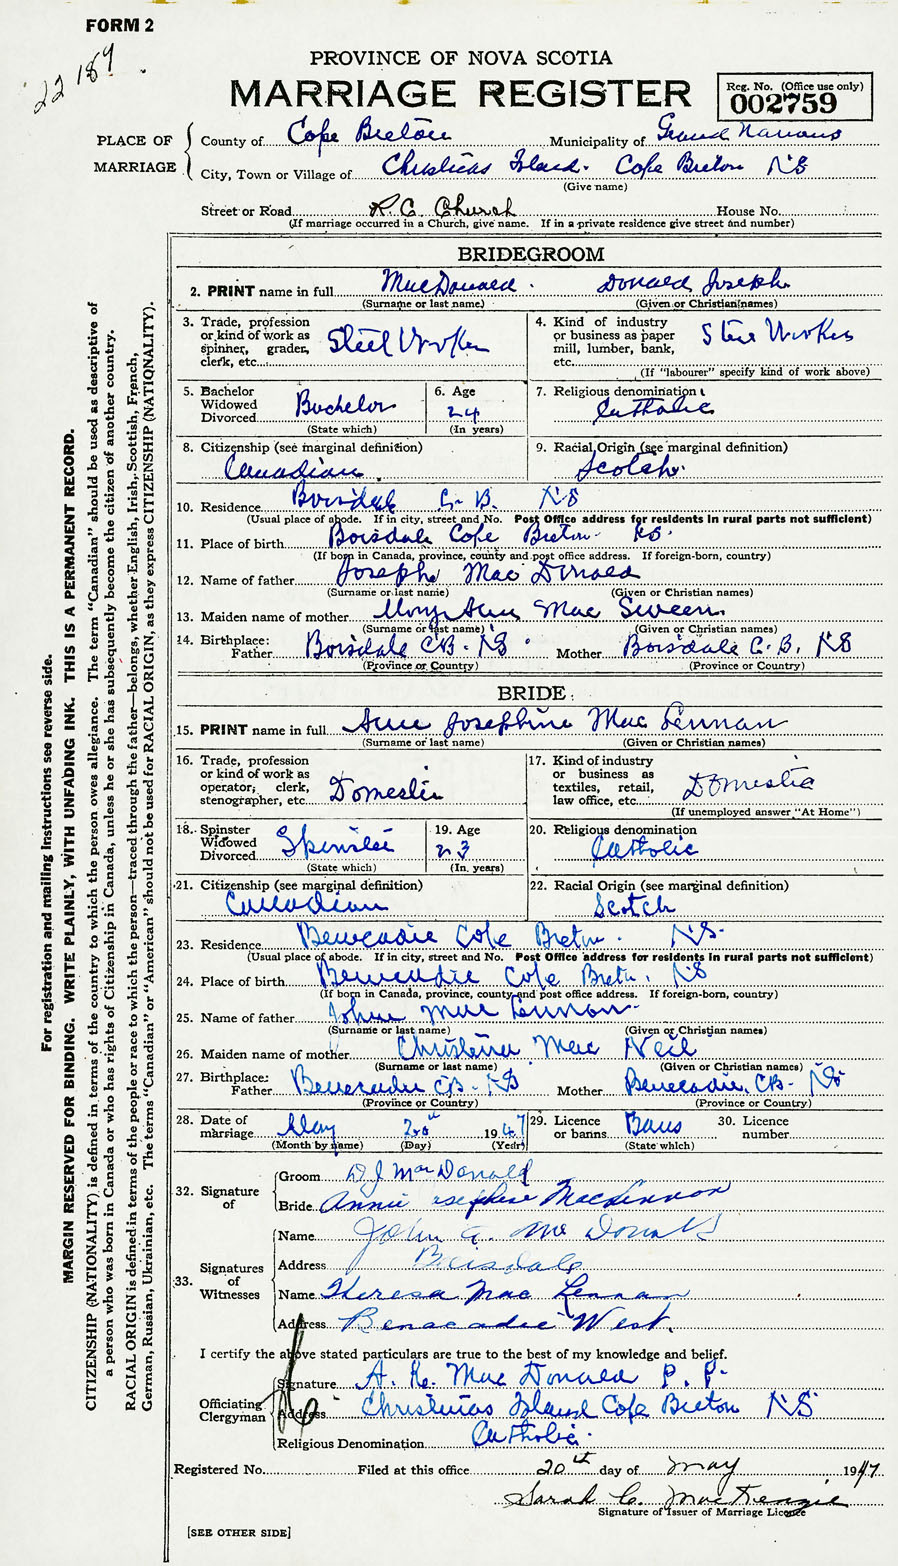 FORM 2
22 189
PROVINCE OF NOVA SCOTIA
MARRIAGE REGISTER
Reg. No. (Office use only)
002759
PLACE OF MARRIAGE
County of Cape Breton Municipality of Grand Narrows
City, Town or Village of Christmas Island. Cape Breton NS
(Give name)
Street or Road R.C. Church House No.
(If marriage occurred in a Church, give name. If in a private residence give street and number)
BRIDEGROOM
2. PRINT name in full MacDonald. Donald Joseph
(Surname or last name) (Given or Christian names)
3. Trade, profession or kind of work as spinner, grader, clerk, etc. Steel Worker
4. Kind of industry or business as paper mill, lumber, bank, etc. Steel Worker
(If "labourer" specify kind of work above)
5. Bachelor Widowed Divorced Bachelor
(State which)
6. Age 24
(In years)
7. Religious denomination Catholic
8. Citizenship (see marginal definition) Canadian
9. Racial Origin (see marginal definition) Scotch
10. Residence Boisdale C.B. NS
(Usual place of abode. If in city, street and No. Post Office address for residents in rural parts not sufficient)
11. Place of birth Boisdale Cape Breton NS.
(If born in Canada, province, county and post office address. If foreign-born, country)
12. Name of father Josephe Mac Donald
(Surname or last name) (Given or Christian names)
13. Maiden name of mother Mary Ann Mac Sween
(Surname or last name) (Given or Christian names)
14. Birthplace: Father Boisdale CB. NS. Mother Boisdale C.B. NS
(Province or Country) (Province or Country)
BRIDE
15. PRINT name in full Ann Josephine Mac Lennan
(Surname or last name) (Given or Christian names)
16. Trade, profession or kind of work as operator, clerk, stenographer, etc. Domestic
17. Kind of industry or business as textiles, retail, law office, etc. Domestic
(If unemployed answer "At Home")
18. Spinster Widowed Divorced Spinster
(State which)
19. Age 23
(In years)
20. Religious denomination Catholic
21. Citizenship (see marginal definition) Canadian
22. Racial Origin (see marginal definition) Scotch
23. Residence Benecadie Cape Breton. NS.
(Usual place of abode. If in city, street and No. Post Office address for residents in rural parts not sufficient)
24. Place of birth Benecadie Cape Breton. NS
(If born in Canada, province, county and post office address. If foreign-born, country)
25. Name of father Mac Lennon
(Surname or last name) (Given or Christian names)
26. Maiden name of mother Christina Mac Neil
(Surname or last name) (Given or Christian names)
27. Birthplace: Father Benecadie CB. NS Mother Benecadie, CB. NS
(Province or Country) (Province or Country)
28. Date of marriage May 20th 1947
(Month by name) (Day) (Year)
29. Licence or banns Bans
(State which)
30. Licence number
32. Signature of
Groom D J MacDonald
Bride Annie Josephine MacLennon
33. Signatures of Witnesses
Name John A. Mc Donald
Address Boisdale
Name Theresa Mac Lennan
Address Benacadie West.
I certify the above stated particulars are true to the best of my knowledge and belief.
Officiating Clergyman
Signature A. R. Mac Donald P. P.
Address Christmas Island Cape Breton NS
Religious Denomination Catholic.
Registered No. Filed at this office 20th day of May 1947
Sarah C. MacKenzie
Signature of Issuer of Marriage Licence
[SEE OTHER SIDE]
For registration and mailing instructions see reverse side.
MARGIN RESERVED FOR BINDING. WRITE PLAINLY, WITH UNFADING INK. THIS IS A PERMANENT RECORD.
CITIZENSHIP (NATIONALITY) is defined in terms of the country to which the person owes allegiance. The term "Canadian" should be used as descriptive of
a person who was born in Canada or who has rights of Citizenship in Canada, unless he or she has subsequently become the citizen of another country.
RACIAL ORIGIN is defined in terms of the people or race to which the person—traced through the father—belongs, whether English, Irish, Scottish, French,
German, Russian, Ukrainian, etc. The terms "Canadian" or "American" should not be used for RACIAL ORIGIN, as they express CITIZENSHIP (NATIONALITY).